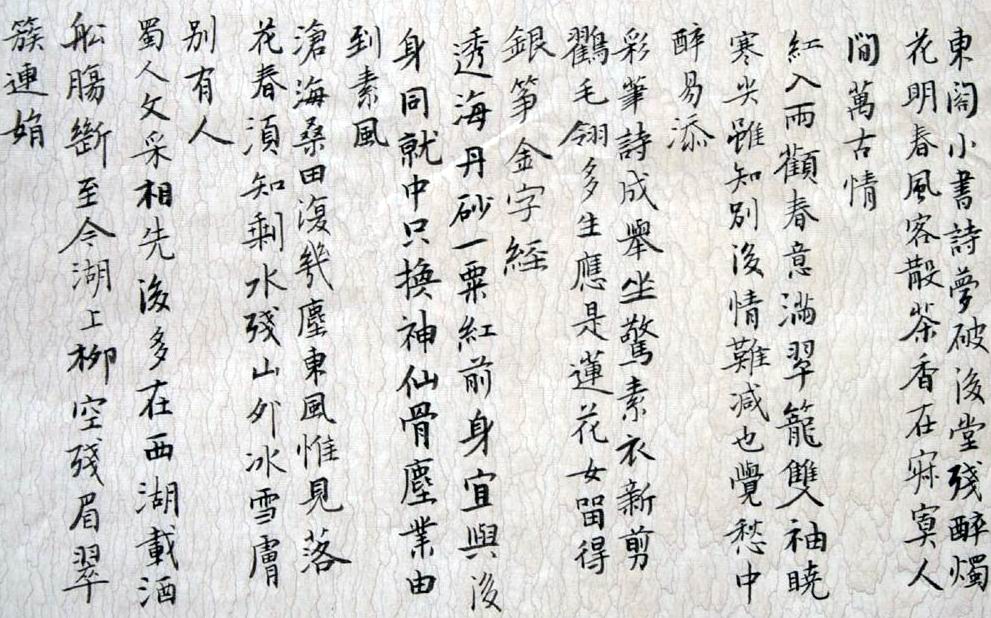 東閣小書詩夢破後堂殘醉燭
花明春風客散茶香在寂寞人
間萬古情
紅入兩顴春意滿翠籠雙袖曉
寒尖雖知別後情難減也覺愁中
醉易添
彩筆詩成舉坐驚素衣新剪
鸛毛翎多生應是蓮花女留得
銀箏金字經
透海丹砂一粟紅前身宜與後
身同就中只換神仙骨塵業由
到素風
滄海桑田復幾塵東風惟見落
花春須知剩水殘山外冰雪膚
別有人
蜀人文采相先後多在西湖載酒
船腸斷至今湖上柳空殘眉翠
簇連娟